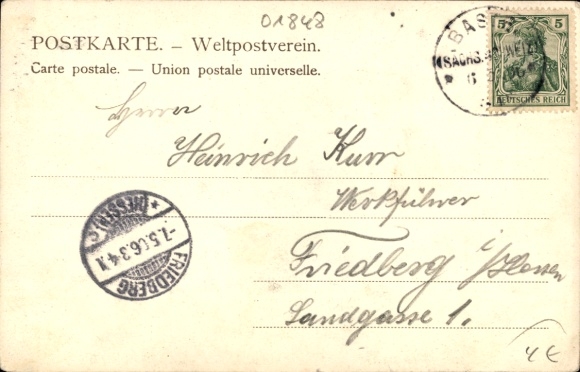 01848
POSTKARTE. – Weltpostverein.
Carte postale. — Union postale universelle.
5 5
DEUTSCHES REICH
Herrn
Heinrich Kurr
Werkführer
Friedberg i/Hessen
Landgasse 1.
* (HESSEN)
-7.5.06.3-4N
FRIEDBERG
4€